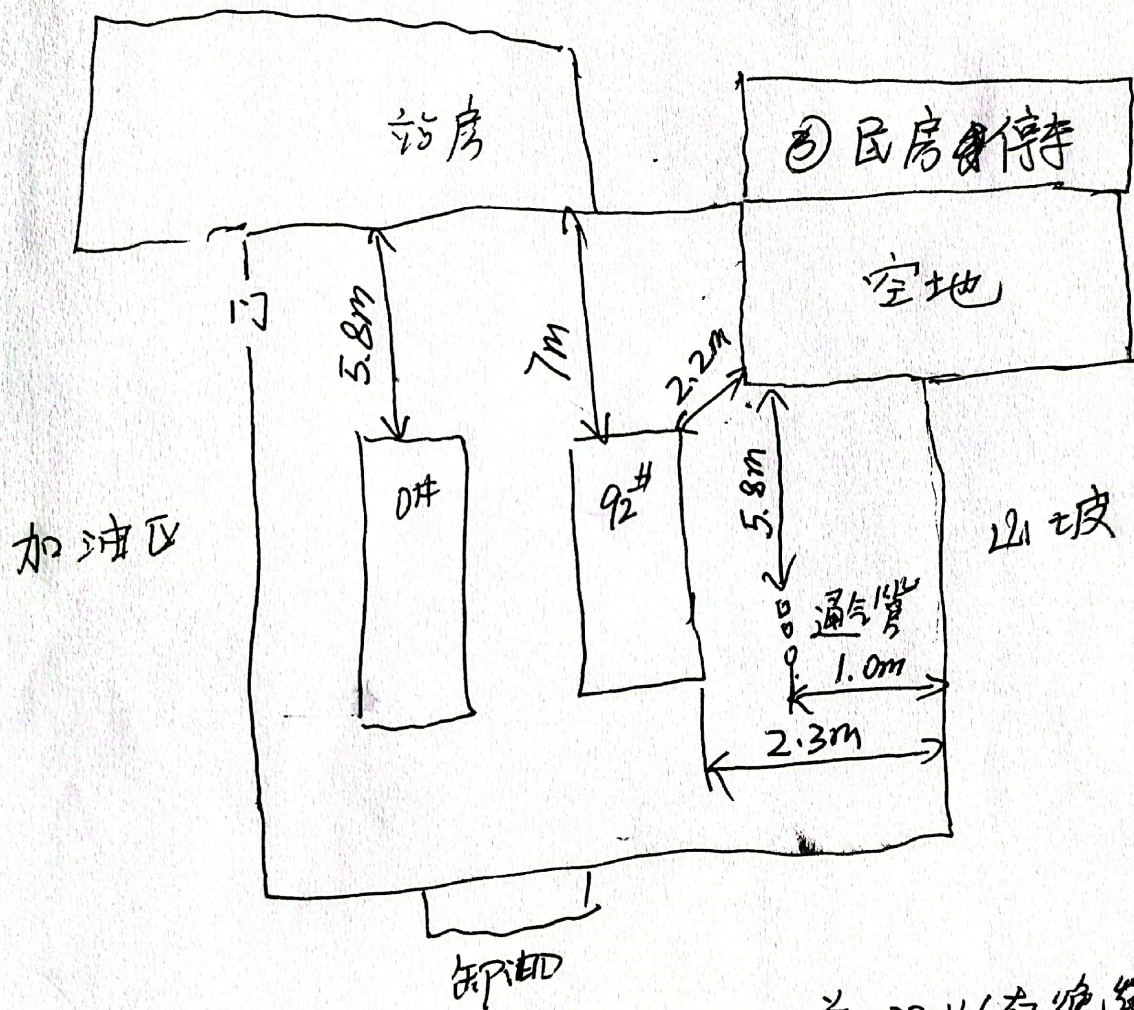 站房
③ 民房 停车
空地
门
5.8m
7m
2.2m
0#
92#
5.8m
加油区
山坡
通气管
1.0m
2.3m
卸油口